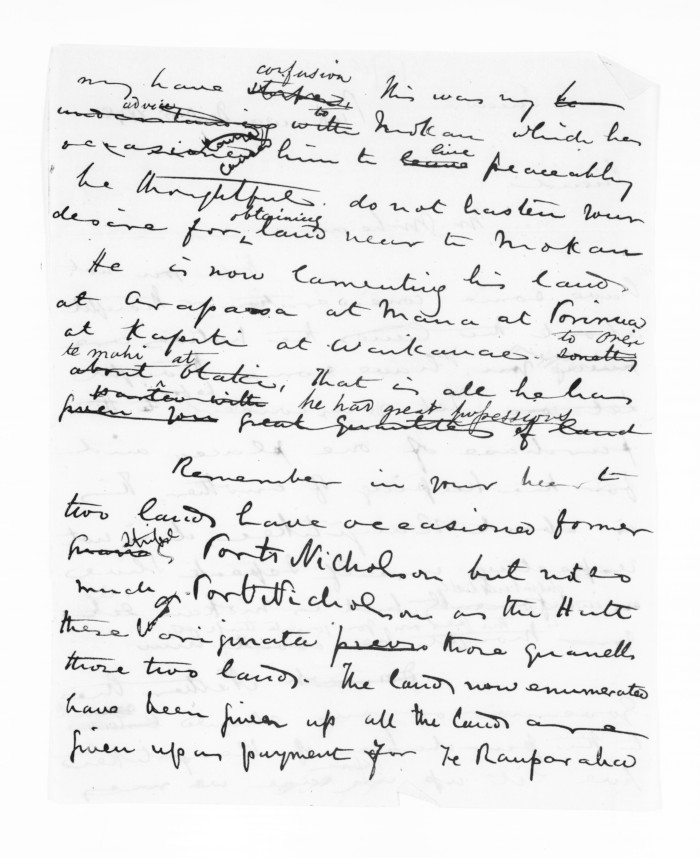 confusion
my have this was my
advice to
understanding with Mokau which has
live
occasioned him to leave peaceably
be thoughtful. do not hasten your
obtaining
desire for land near to Mokau
He is now lamenting his land
at Arapaoa at Mana at Porirua
at Kapiti at Waikanae
te mahi at to
about Otaki, That is all he has
parted with he had great professions
given you great quantities of land
Remember in your heart
two lands have occasioned former
strife
Port Nicholson but not so
much Port Nicholson as the Hutt
these originata those quarells
those two lands The lands now enumerated
have been given up all the lands are
given up as payment for Te Rauparaha